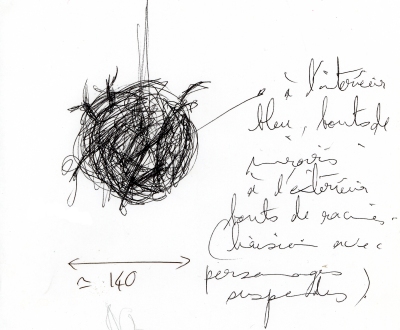 à l'intérieur
bleu, bouts de
miroirs
à l'extérieur
bouts de racines.
(liaison avec
personnages
suspendus).
≃ 140